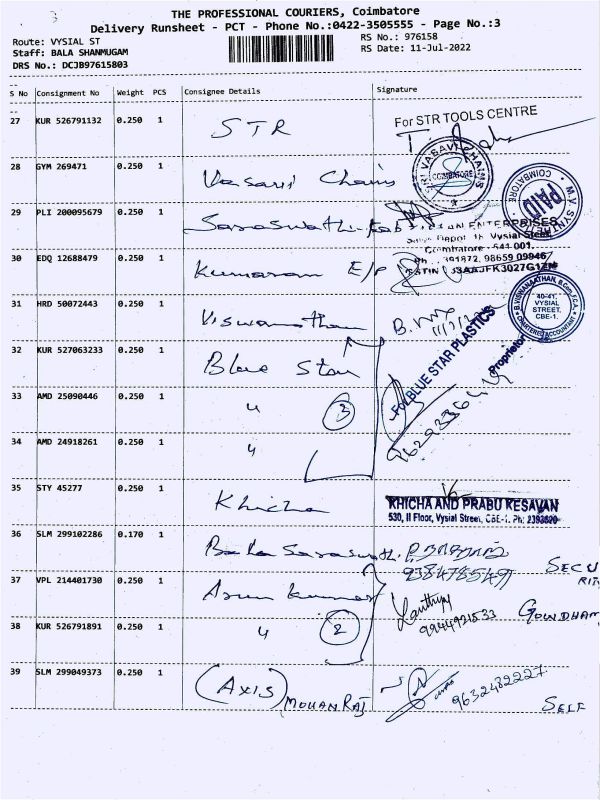 THE PROFESSIONAL COURIERS, Coimbatore
Delivery Runsheet - PCT - Phone No.:0422-3505555 - Page No.:3
Route: VYSIAL ST
RS No.: 976158
Staff: BALA SHANMUGAM
RS Date: 11-Jul-2022
DRS No.: DCJB97615803
S No Consignment No Weight PCS Consignee Details Signature
27 KUR 526791132 0.250 1 STR For STR TOOLS CENTRE
28 GYM 269471 0.250 1 Vasavi Chains
SRI VASAVI CHAINS COIMBATORE
29 PLI 200095679 0.250 1 Saraswathi
PAID COIMBATORE
ENTERPRISES
Vysial Street
Coimbatore - 641 001.
98659 09946
30 EDQ 12688479 0.250 1 Kumaran E/P
31 HRD 50072443 0.250 1 Viswanathan
40-41, VYSIAL STREET, CBE-1.
CHARTERED ACCOUNTANT
32 KUR 527063233 0.250 1 Blue Star
For BLUE STAR PLASTICS
Proprietor
33 AMD 25090446 0.250 1 " 3
34 AMD 24918261 0.250 1 "
35 STY 45277 0.250 1 Khicha
KHICHA AND PRABU KESAVAN
530, II Floor, Vysial Street, CBE-1. Ph: 2393820
36 SLM 299102286 0.170 1 Bala Saraswathi
SECURITY
37 VPL 214401730 0.250 1 Arun Kumar
9944921533 GOWDHAM
38 KUR 526791891 0.250 1 " 2
39 SLM 299049373 0.250 1 (AXIS) MOHAN RAJ
9632482227
SELF